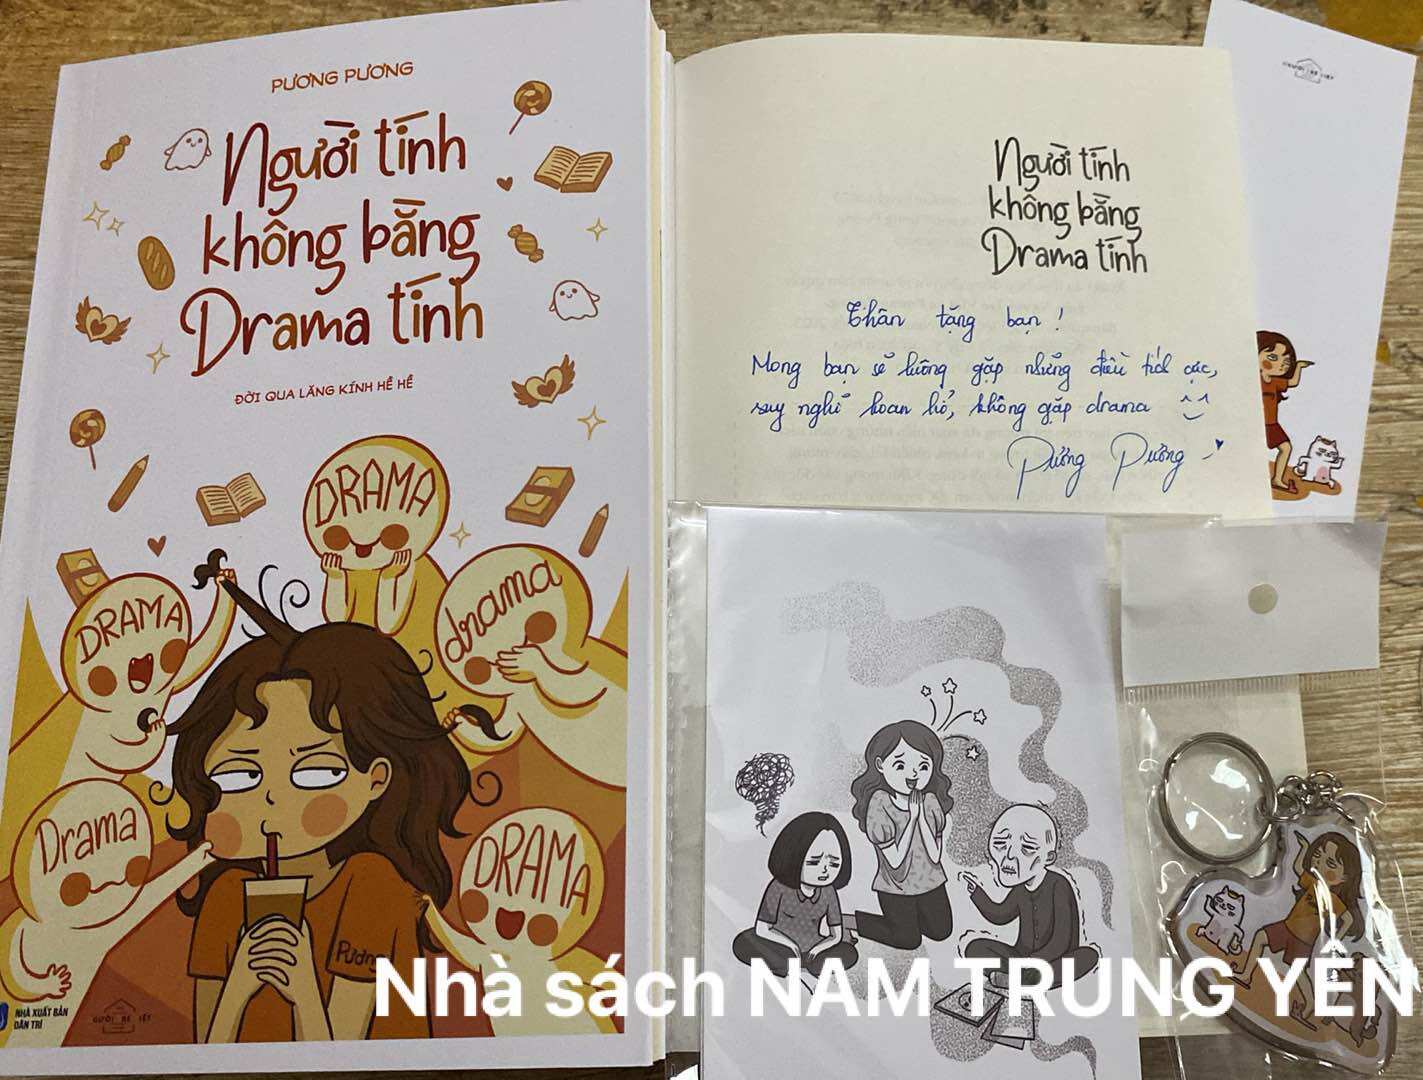 PƯƠNG PƯƠNG
Người tính
không bằng
Drama tính
ĐỜI QUA LĂNG KÍNH HỀ HỀ
DRAMA
DRAMA
drama
Drama
DRAMA
Pương
NHÀ XUẤT BẢN
DÂN TRÍ
Người tính
không bằng
Drama tính
Thân tặng bạn!
Mong bạn sẽ luôn gặp những điều tích cực,
suy nghĩ hoan hỉ, không gặp drama ^^
Pương Pương
Nhà sách NAM TRUNG YÊN